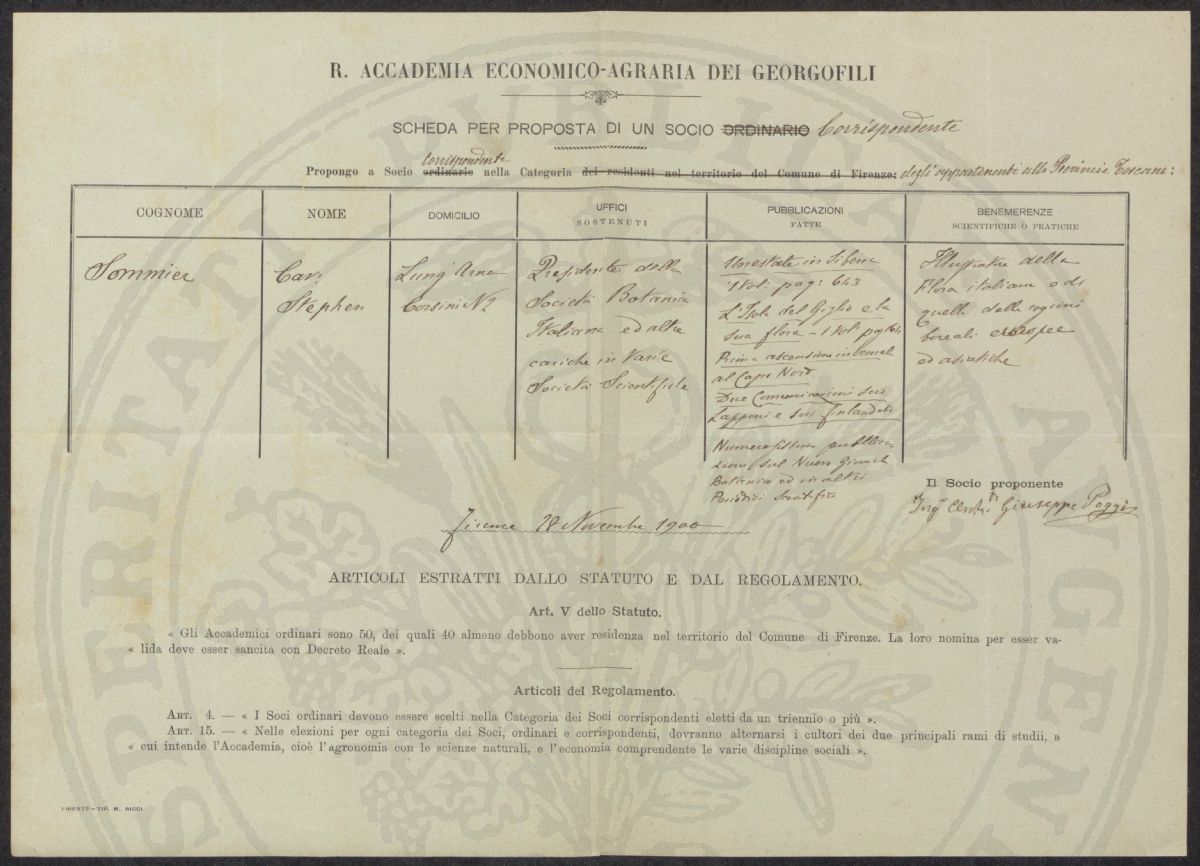 R. ACCADEMIA ECONOMICO-AGRARIA DEI GEORGOFILI
SCHEDA PER PROPOSTA DI UN SOCIO ORDINARIO Corrispondente
Corrispondente
Propongo a Socio ordinario nella Categoria dei residenti nel territorio del Comune di Firenze: degli appartenenti alle Provincie Toscane:
COGNOME
NOME
DOMICILIO
UFFICI
SOSTENUTI
PUBBLICAZIONI
FATTE
BENEMERENZE
SCIENTIFICHE O PRATICHE
Sommier
Cav.
Stephen
Lung'Arno
Corsini N 2
Presidente della
Società Botanica
Italiana ed altre
cariche in Varie
Società Scientifiche
Un estate in Siberia
1 Vol: pag: 643
L'Isola del Giglio e la
sua flora - 1 Vol: pag
Prima ascensione invernale
al Capo Nord
Due Comunicazioni sui
Lapponi e sui finlandesi
Numerosissime pubblica
zioni sul Nuovo Giornale
Botanico ed in altri
Periodici Scientifici
Illustratore della
Flora italiana e di
quella delle regioni
boreali europee
ed asiatiche
Il Socio proponente
Ing. Giuseppe Poggi
Firenze 28 Novembre 1900
ARTICOLI ESTRATTI DALLO STATUTO E DAL REGOLAMENTO.
Art. V dello Statuto.
« Gli Accademici ordinari sono 50, dei quali 40 almeno debbono aver residenza nel territorio del Comune di Firenze. La loro nomina per esser va-
« lida deve esser sancita con Decreto Reale ».
Articoli del Regolamento.
ART. 4. — « I Soci ordinari devono essere scelti nella Categoria dei Soci corrispondenti eletti da un triennio o più ».
ART. 15. — « Nelle elezioni per ogni categoria dei Soci, ordinari e corrispondenti, dovranno alternarsi i cultori dei due principali rami di studii, a
« cui intende l'Accademia, cioè l'agronomia con le scienze naturali, e l'economia comprendente le varie discipline sociali ».
FIRENZE—TIP. M. RICCI